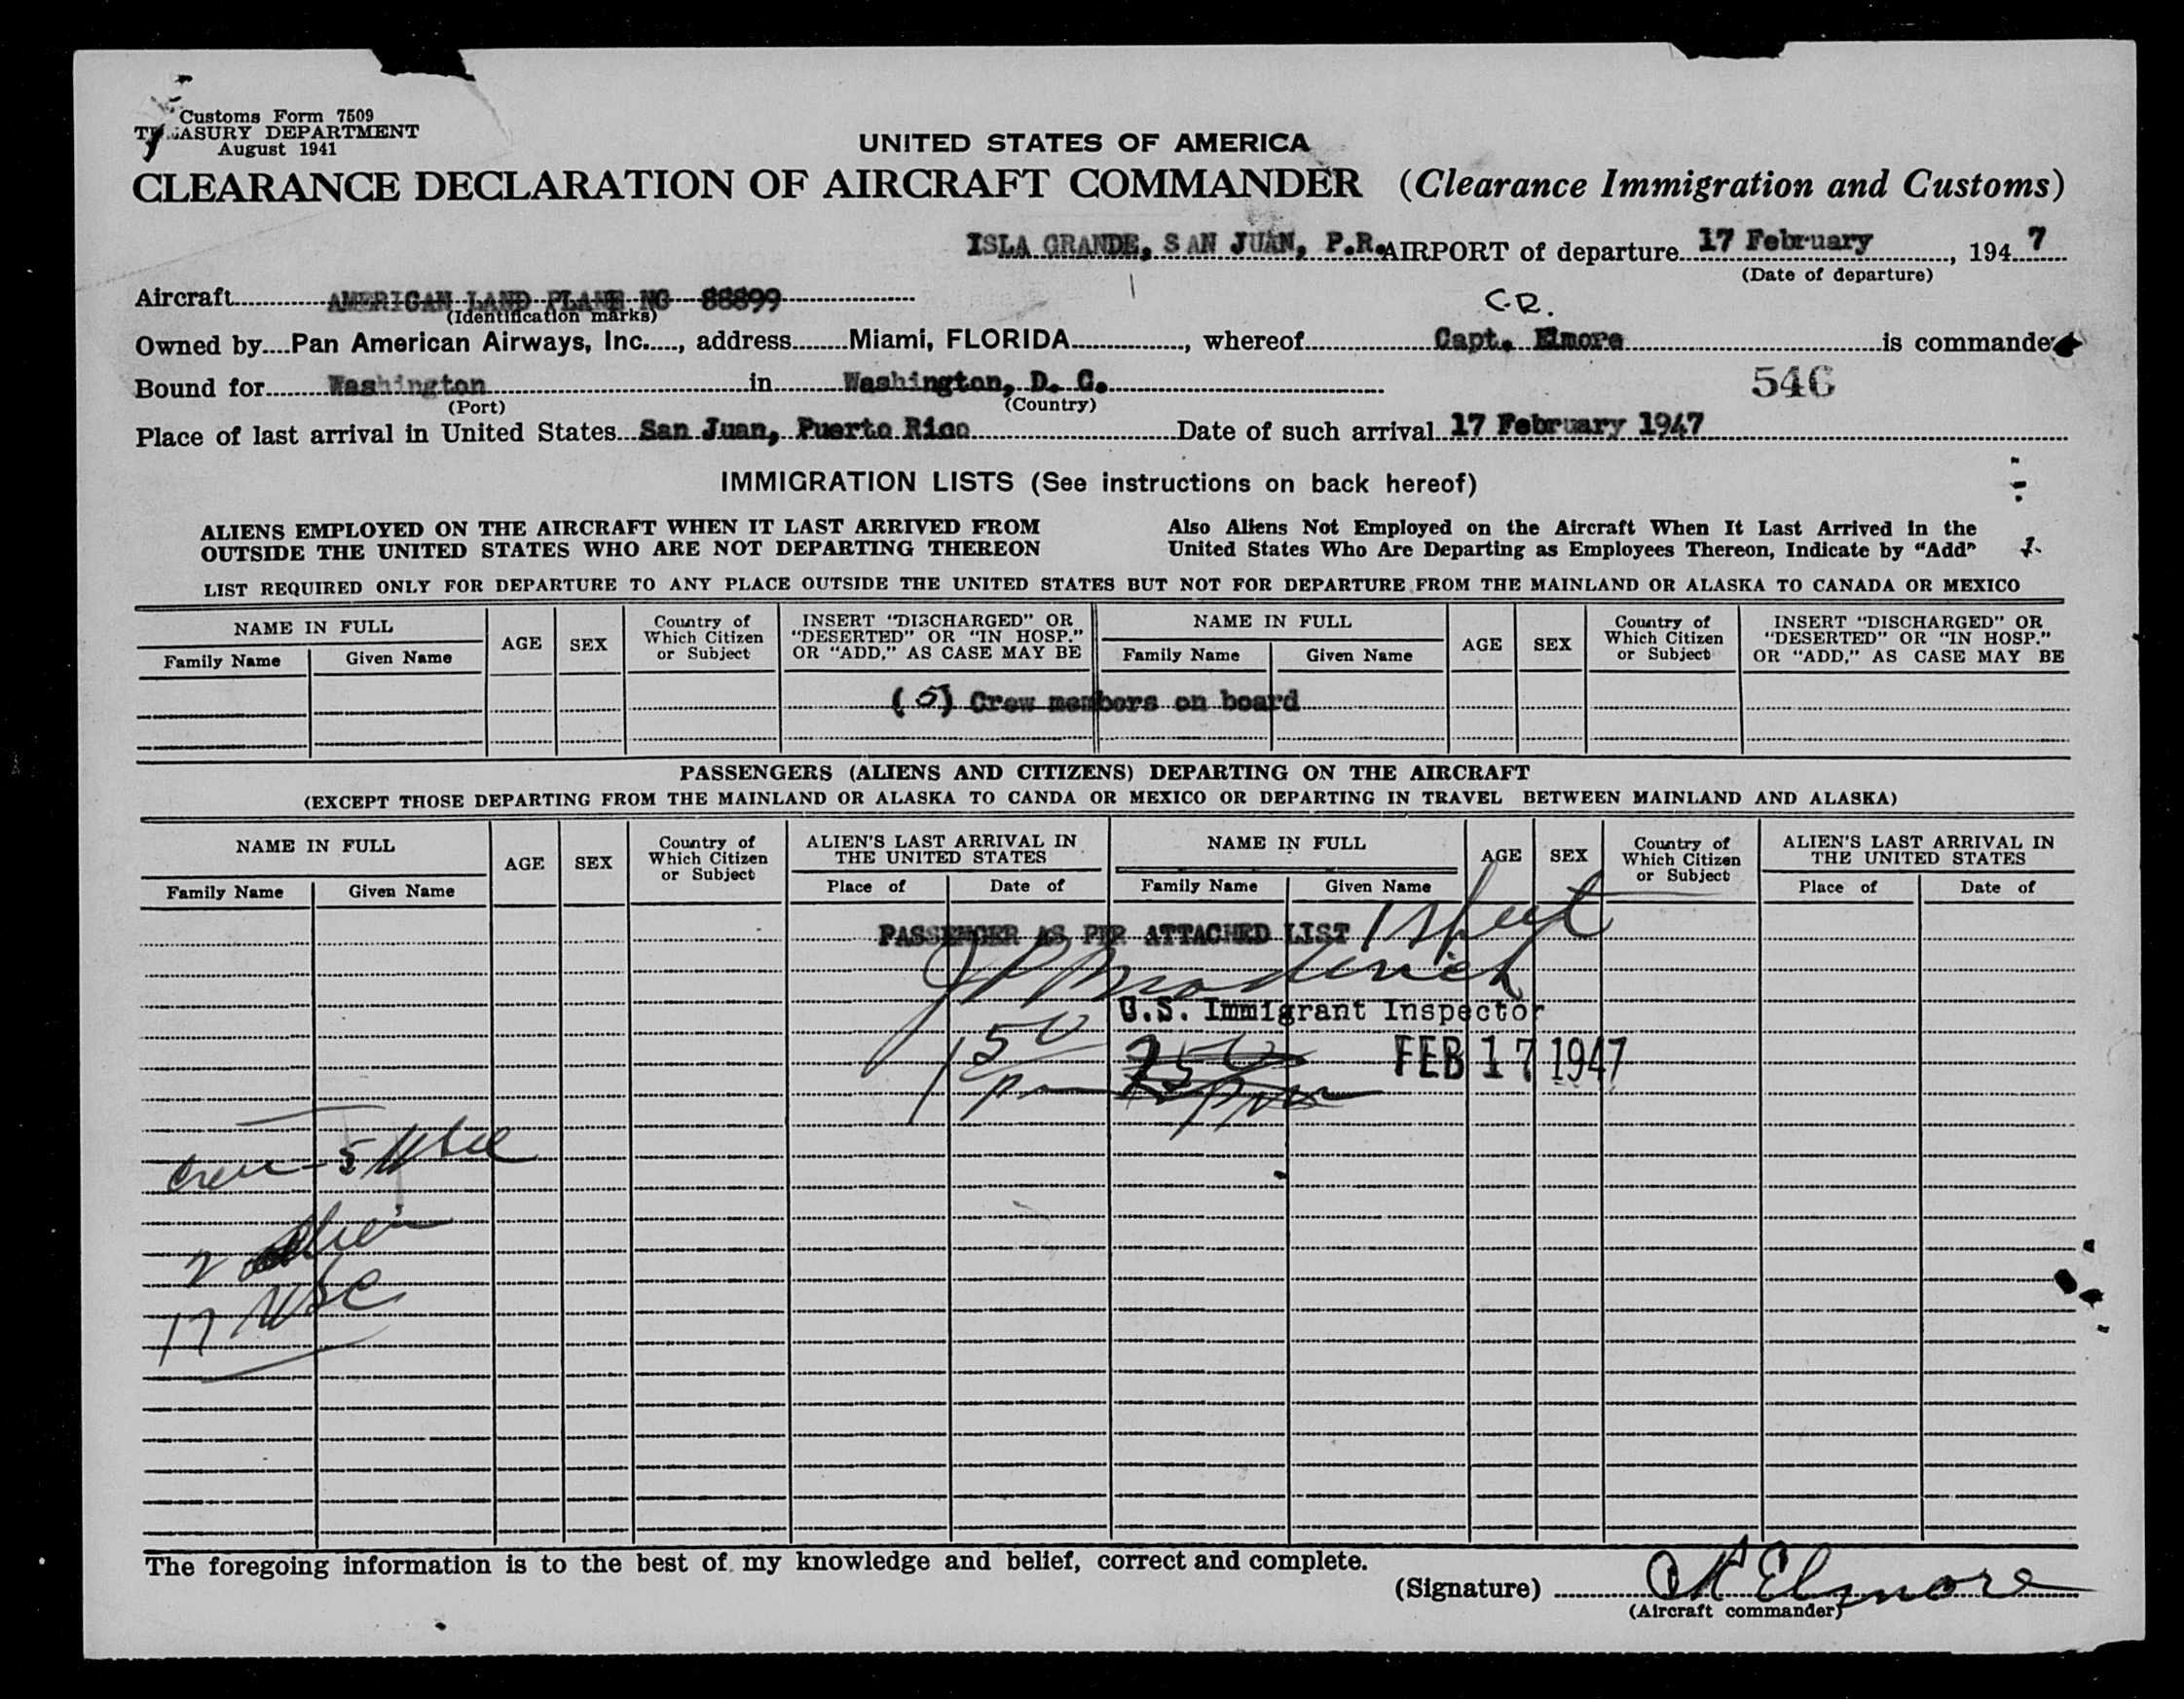 Customs Form 7509
TREASURY DEPARTMENT
August 1941
UNITED STATES OF AMERICA
CLEARANCE DECLARATION OF AIRCRAFT COMMANDER (Clearance Immigration and Customs)
ISLA GRANDE, SAN JUAN, P.R. AIRPORT of departure 17 February, 1947
(Date of departure)
Aircraft AMERICAN LAND PLANE NC 88899
(Identification marks)
C.R.
Owned by Pan American Airways, Inc., address Miami, FLORIDA, whereof Capt. Elmore is commander
Bound for Washington in Washington, D. C.
546
(Port) (Country)
Place of last arrival in United States San Juan, Puerto Rico Date of such arrival 17 February 1947
IMMIGRATION LISTS (See instructions on back hereof)
ALIENS EMPLOYED ON THE AIRCRAFT WHEN IT LAST ARRIVED FROM
OUTSIDE THE UNITED STATES WHO ARE NOT DEPARTING THEREON
Also Aliens Not Employed on the Aircraft When It Last Arrived in the
United States Who Are Departing as Employees Thereon, Indicate by "Add"
LIST REQUIRED ONLY FOR DEPARTURE TO ANY PLACE OUTSIDE THE UNITED STATES BUT NOT FOR DEPARTURE FROM THE MAINLAND OR ALASKA TO CANADA OR MEXICO
NAME IN FULL
Family Name Given Name
AGE
SEX
Country of
Which Citizen
or Subject
INSERT "DISCHARGED" OR
"DESERTED" OR "IN HOSP."
OR "ADD," AS CASE MAY BE
NAME IN FULL
Family Name Given Name
AGE
SEX
Country of
Which Citizen
or Subject
INSERT "DISCHARGED" OR
"DESERTED" OR "IN HOSP."
OR "ADD," AS CASE MAY BE
(5) Crew members on board
PASSENGERS (ALIENS AND CITIZENS) DEPARTING ON THE AIRCRAFT
(EXCEPT THOSE DEPARTING FROM THE MAINLAND OR ALASKA TO CANDA OR MEXICO OR DEPARTING IN TRAVEL BETWEEN MAINLAND AND ALASKA)
NAME IN FULL
Family Name Given Name
AGE
SEX
Country of
Which Citizen
or Subject
ALIEN'S LAST ARRIVAL IN
THE UNITED STATES
Place of Date of
NAME IN FULL
Family Name Given Name
AGE
SEX
Country of
Which Citizen
or Subject
ALIEN'S LAST ARRIVAL IN
THE UNITED STATES
Place of Date of
PASSENGER AS PER ATTACHED LIST 1 Sheet
U.S. Immigrant Inspector
1 50 pm
FEB 17 1947
Crew - 5 USC
2 Alien
17 USC
The foregoing information is to the best of my knowledge and belief, correct and complete.
(Signature) CR Elmore
(Aircraft commander)